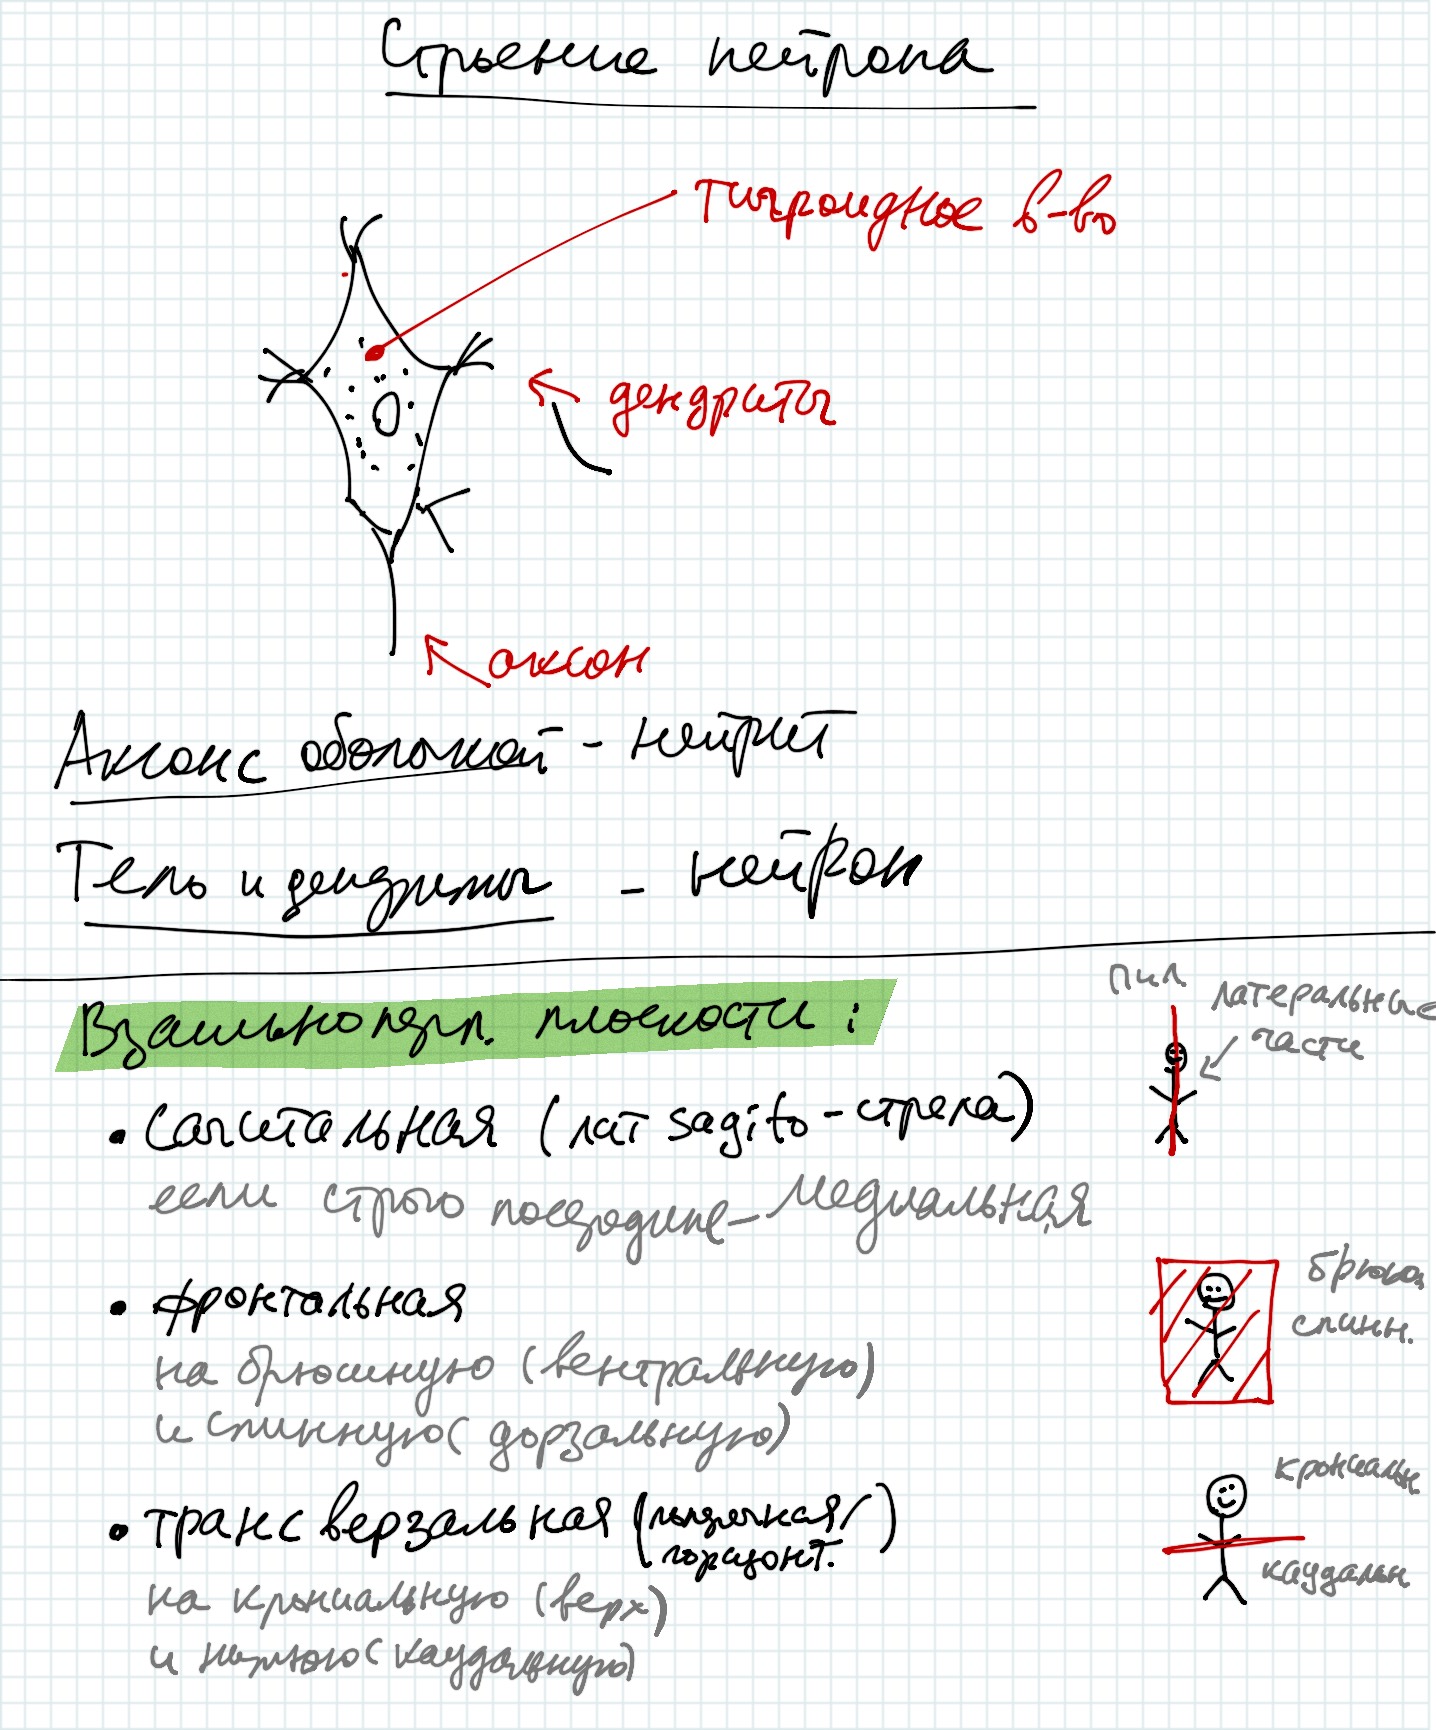 Строение нейрона
тигроидное в-во
дендриты
аксон
Аксон с оболочкой - нейрит
Тело и дендриты - нейрон
Взаимноперп. плоскости:
пил.
латеральные
части
• Сагитальная (лат sagito - стрела)
если строго посередине - медиальная
• фронтальная
на брюшную (вентральную)
и спинную (дорзальную)
брюшн.
спинн.
• трансверзальная (поперечная/
горизонт.)
на крониальную (верх)
и нижнюю (каудальную)
крониальн
каудальн.